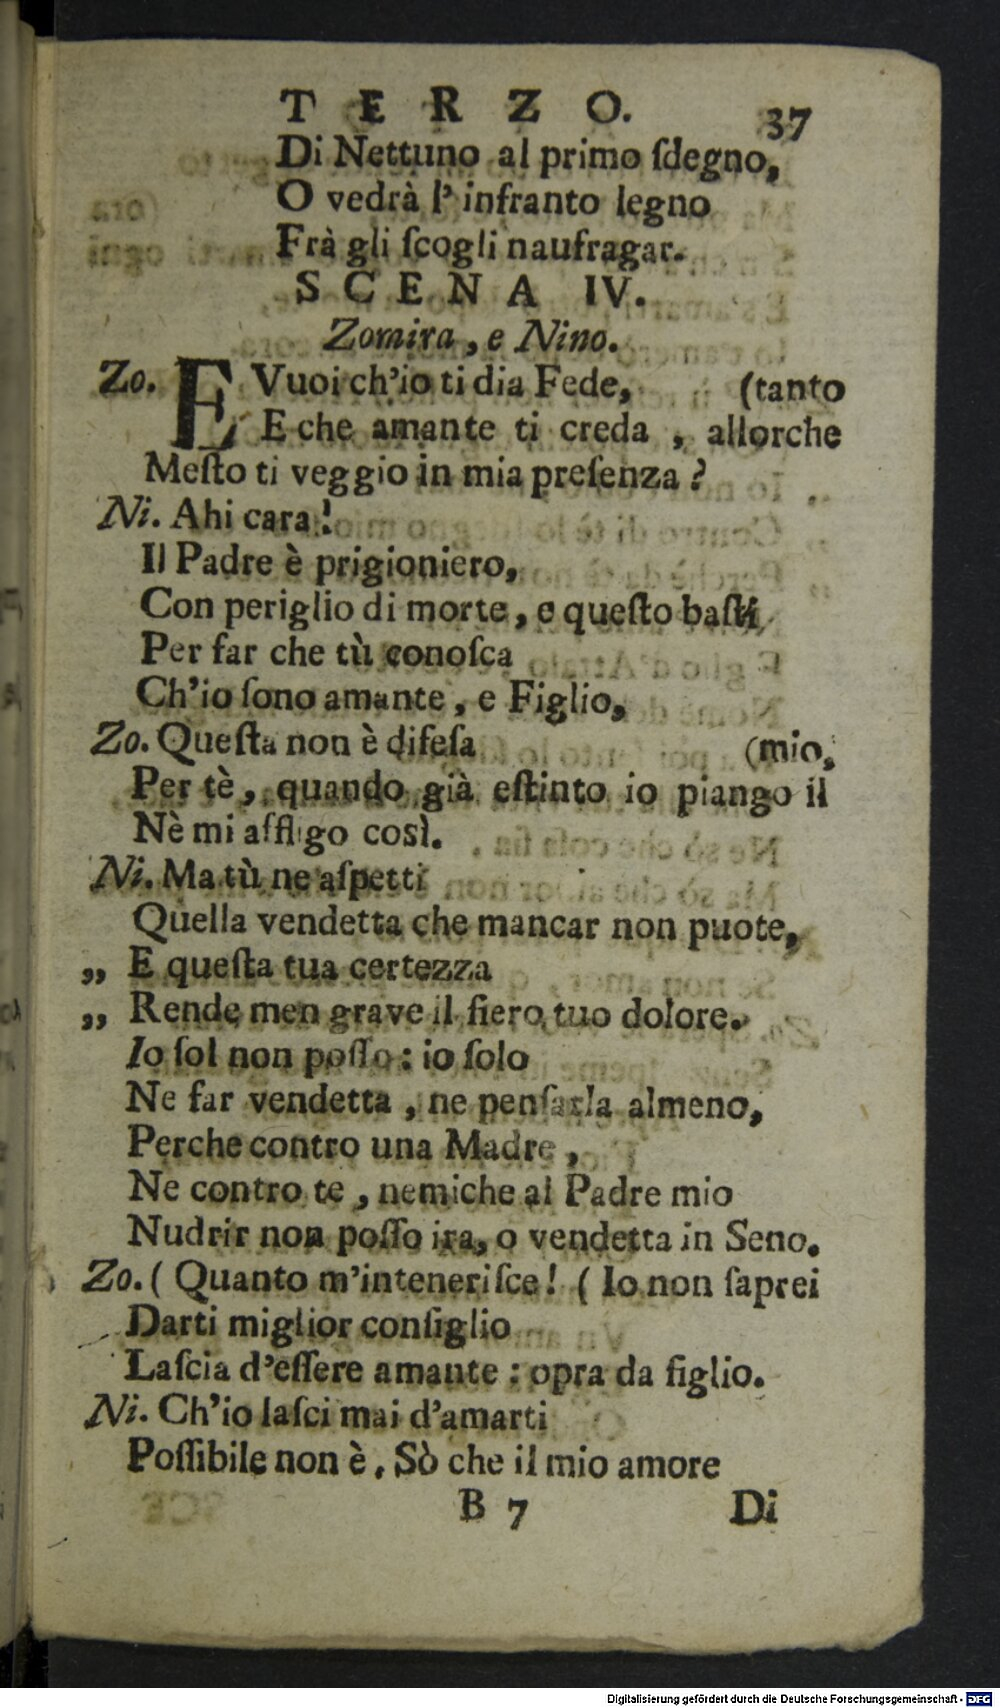 TERZO. 37
Di Nettuno al primo ſdegno,
O vedrà l' infranto legno
Frà gli ſcogli naufragar.
SCENA IV.
Zomira, e Nino.
Zo. E Vuoi ch'io ti dia Fede, (tanto
E che amante ti creda, allorche
Meſto ti veggio in mia preſenza?
Ni. Ahi cara!
Il Padre è prigioniero,
Con periglio di morte, e queſto baſti
Per far che tù conoſca
Ch'io ſono amante, e Figlio,
Zo. Queſta non è difeſa (mio,
Per tè, quando già eſtinto io piango il
Nè mi affligo così.
Ni. Ma tù ne aſpetti
Quella vendetta che mancar non puote,
„ E queſta tua certezza
„ Rende men grave il fiero tuo dolore.
Io ſol non poſſo: io ſolo
Ne far vendetta, ne penſarla almeno,
Perche contro una Madre,
Ne contro te, nemiche al Padre mio
Nudrir non poſſo ira, o vendetta in Seno.
Zo. (Quanto m'inteneriſce! (Io non ſaprei
Darti miglior conſiglio
Laſcia d'eſſere amante: opra da figlio.
Ni. Ch'io laſci mai d'amarti
Poſſibile non è. Sò che il mio amore
B 7 Di
Digitalisierung gefördert durch die Deutsche Forschungsgemeinschaft - DFG